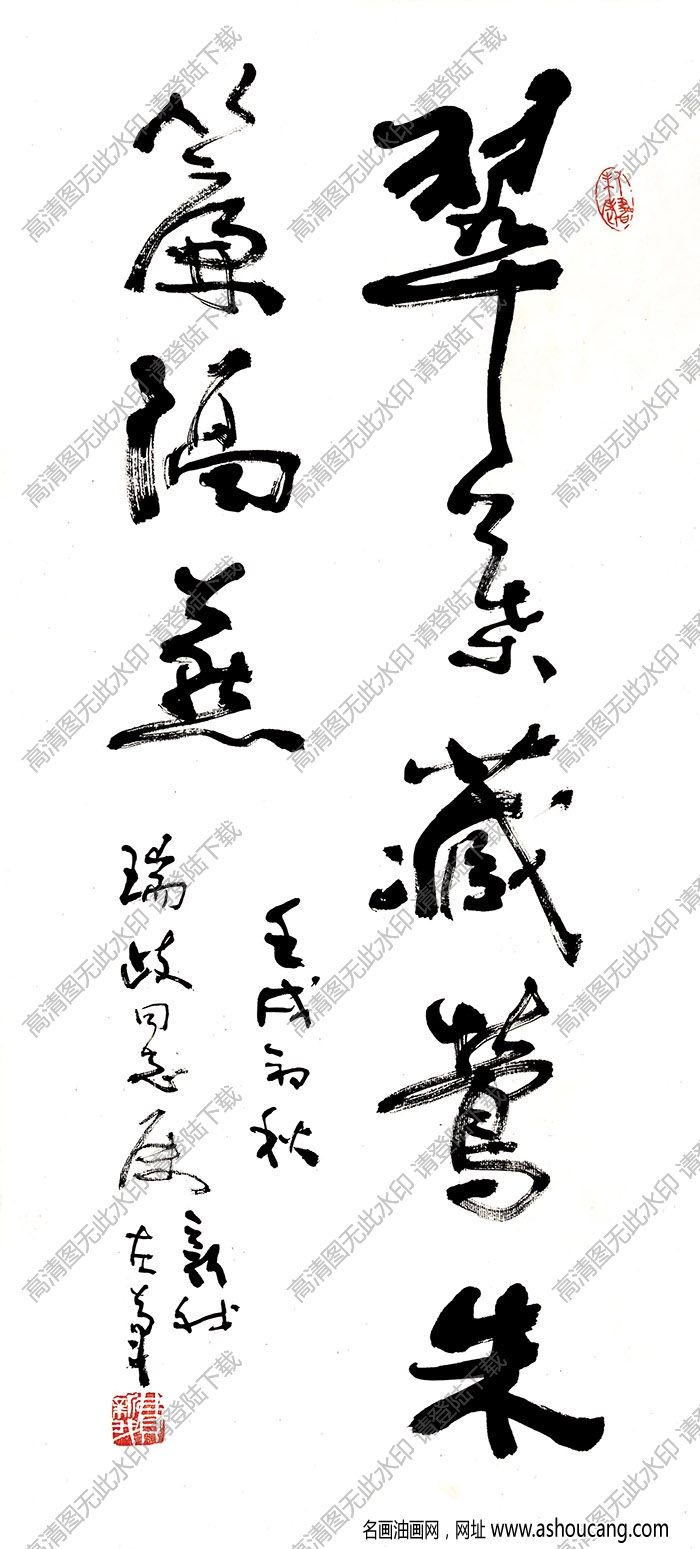 翠葉藏鶯朱
簾隔燕
壬戌初秋
瑞岐同志屬
新我
左筆
費新我
高清图无此水印 请登陆下载
名画油画网，网址 www.ashoucang.com